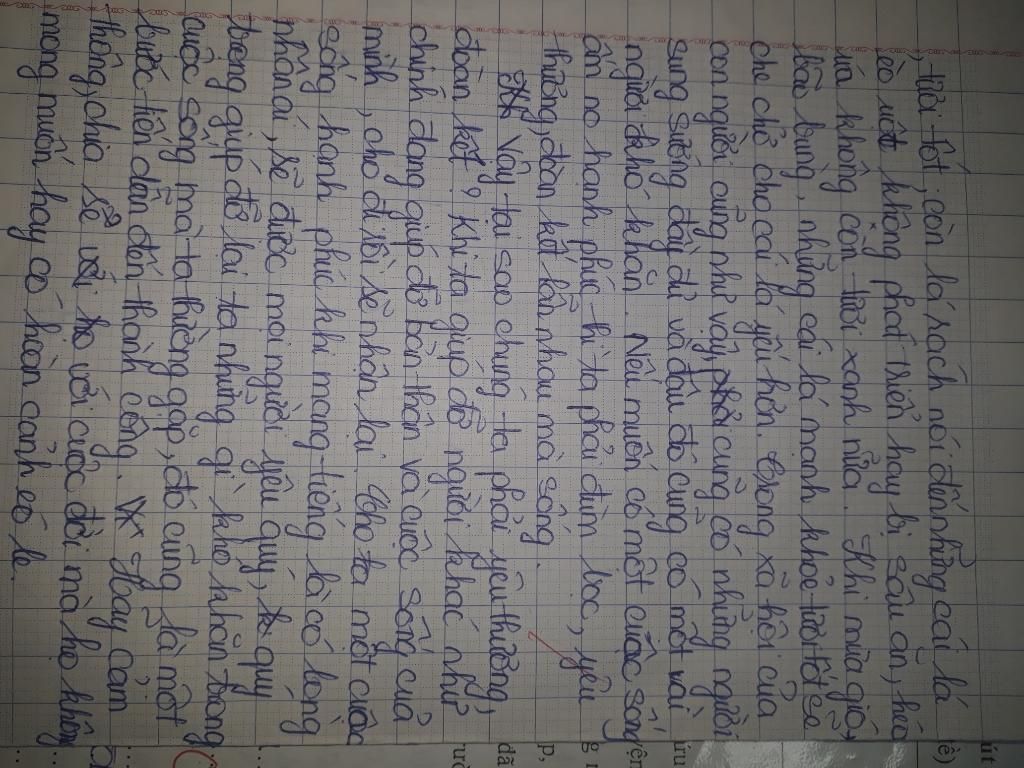 , tươi tốt, còn lá rách nói đến những cái lá
èo uột không phát triển hay bị sâu ăn, héo
úa không còn tươi xanh nữa. Khi mưa gió,
bão bùng, những cái lá mạnh khỏe tươi tốt sẽ
che chở cho cái lá yếu hơn. Trong xã hội của
con người cũng như vậy, cũng có những người
sung sướng đầy đủ và đâu đó cũng có một vài
người khó khăn. Nếu muốn có một cuộc sống
ấm no hạnh phúc thì ta phải đùm bọc, yêu
thương, đoàn kết lẫn nhau mà sống.
Vậy tại sao chúng ta phải yêu thương,
đoàn kết? Khi ta giúp đỡ người khác như
chính đang giúp đỡ bản thân và cuộc sống của
mình, cho đi rồi sẽ nhận lại. Cho ta một cuộc
sống hạnh phúc khi mang tiếng là có lòng
nhân ái, sẽ được mọi người yêu quý, quý
trọng giúp đỡ lại ta những gì khó khăn trong
cuộc sống mà ta thường gặp, đó cũng là một
bước tiến dẫn đến thành công. Hãy cảm
thông, chia sẻ với cuộc đời mà họ không
mong muốn hay có hoàn cảnh éo le.
út
ề)
úu
yên
g n
p,
đã
ườ